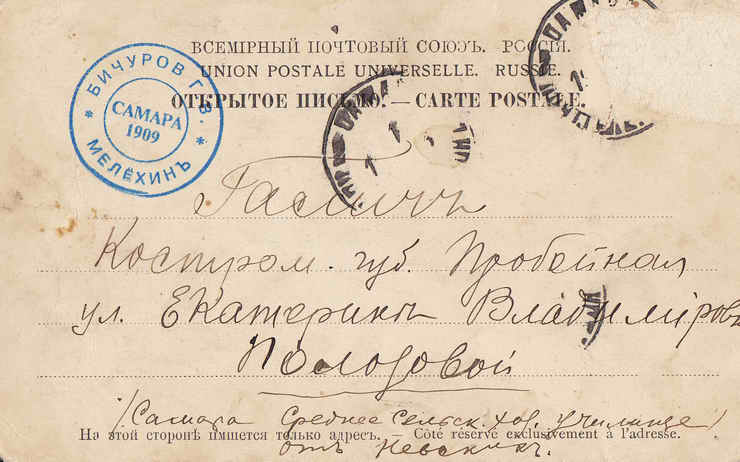 ВСЕМІРНЫЙ ПОЧТОВЫЙ СОЮЗЪ. РОССІЯ.
UNION POSTALE UNIVERSELLE. RUSSIE.
ОТКРЫТОЕ ПИСЬМО. — CARTE POSTALE.
БИЧУРОВ Г.В.
САМАРА
1909
МЕЛЁХИНЪ
Галичъ
Костром. губ. Пробойная
ул. Екатеринѣ Владиміровнѣ
Полозовой
/Самара Среднее Сельск. хоз. училище/
На этой сторонѣ пишется только адресъ. — Côté réservé exclusivement à l'adresse.
отъ